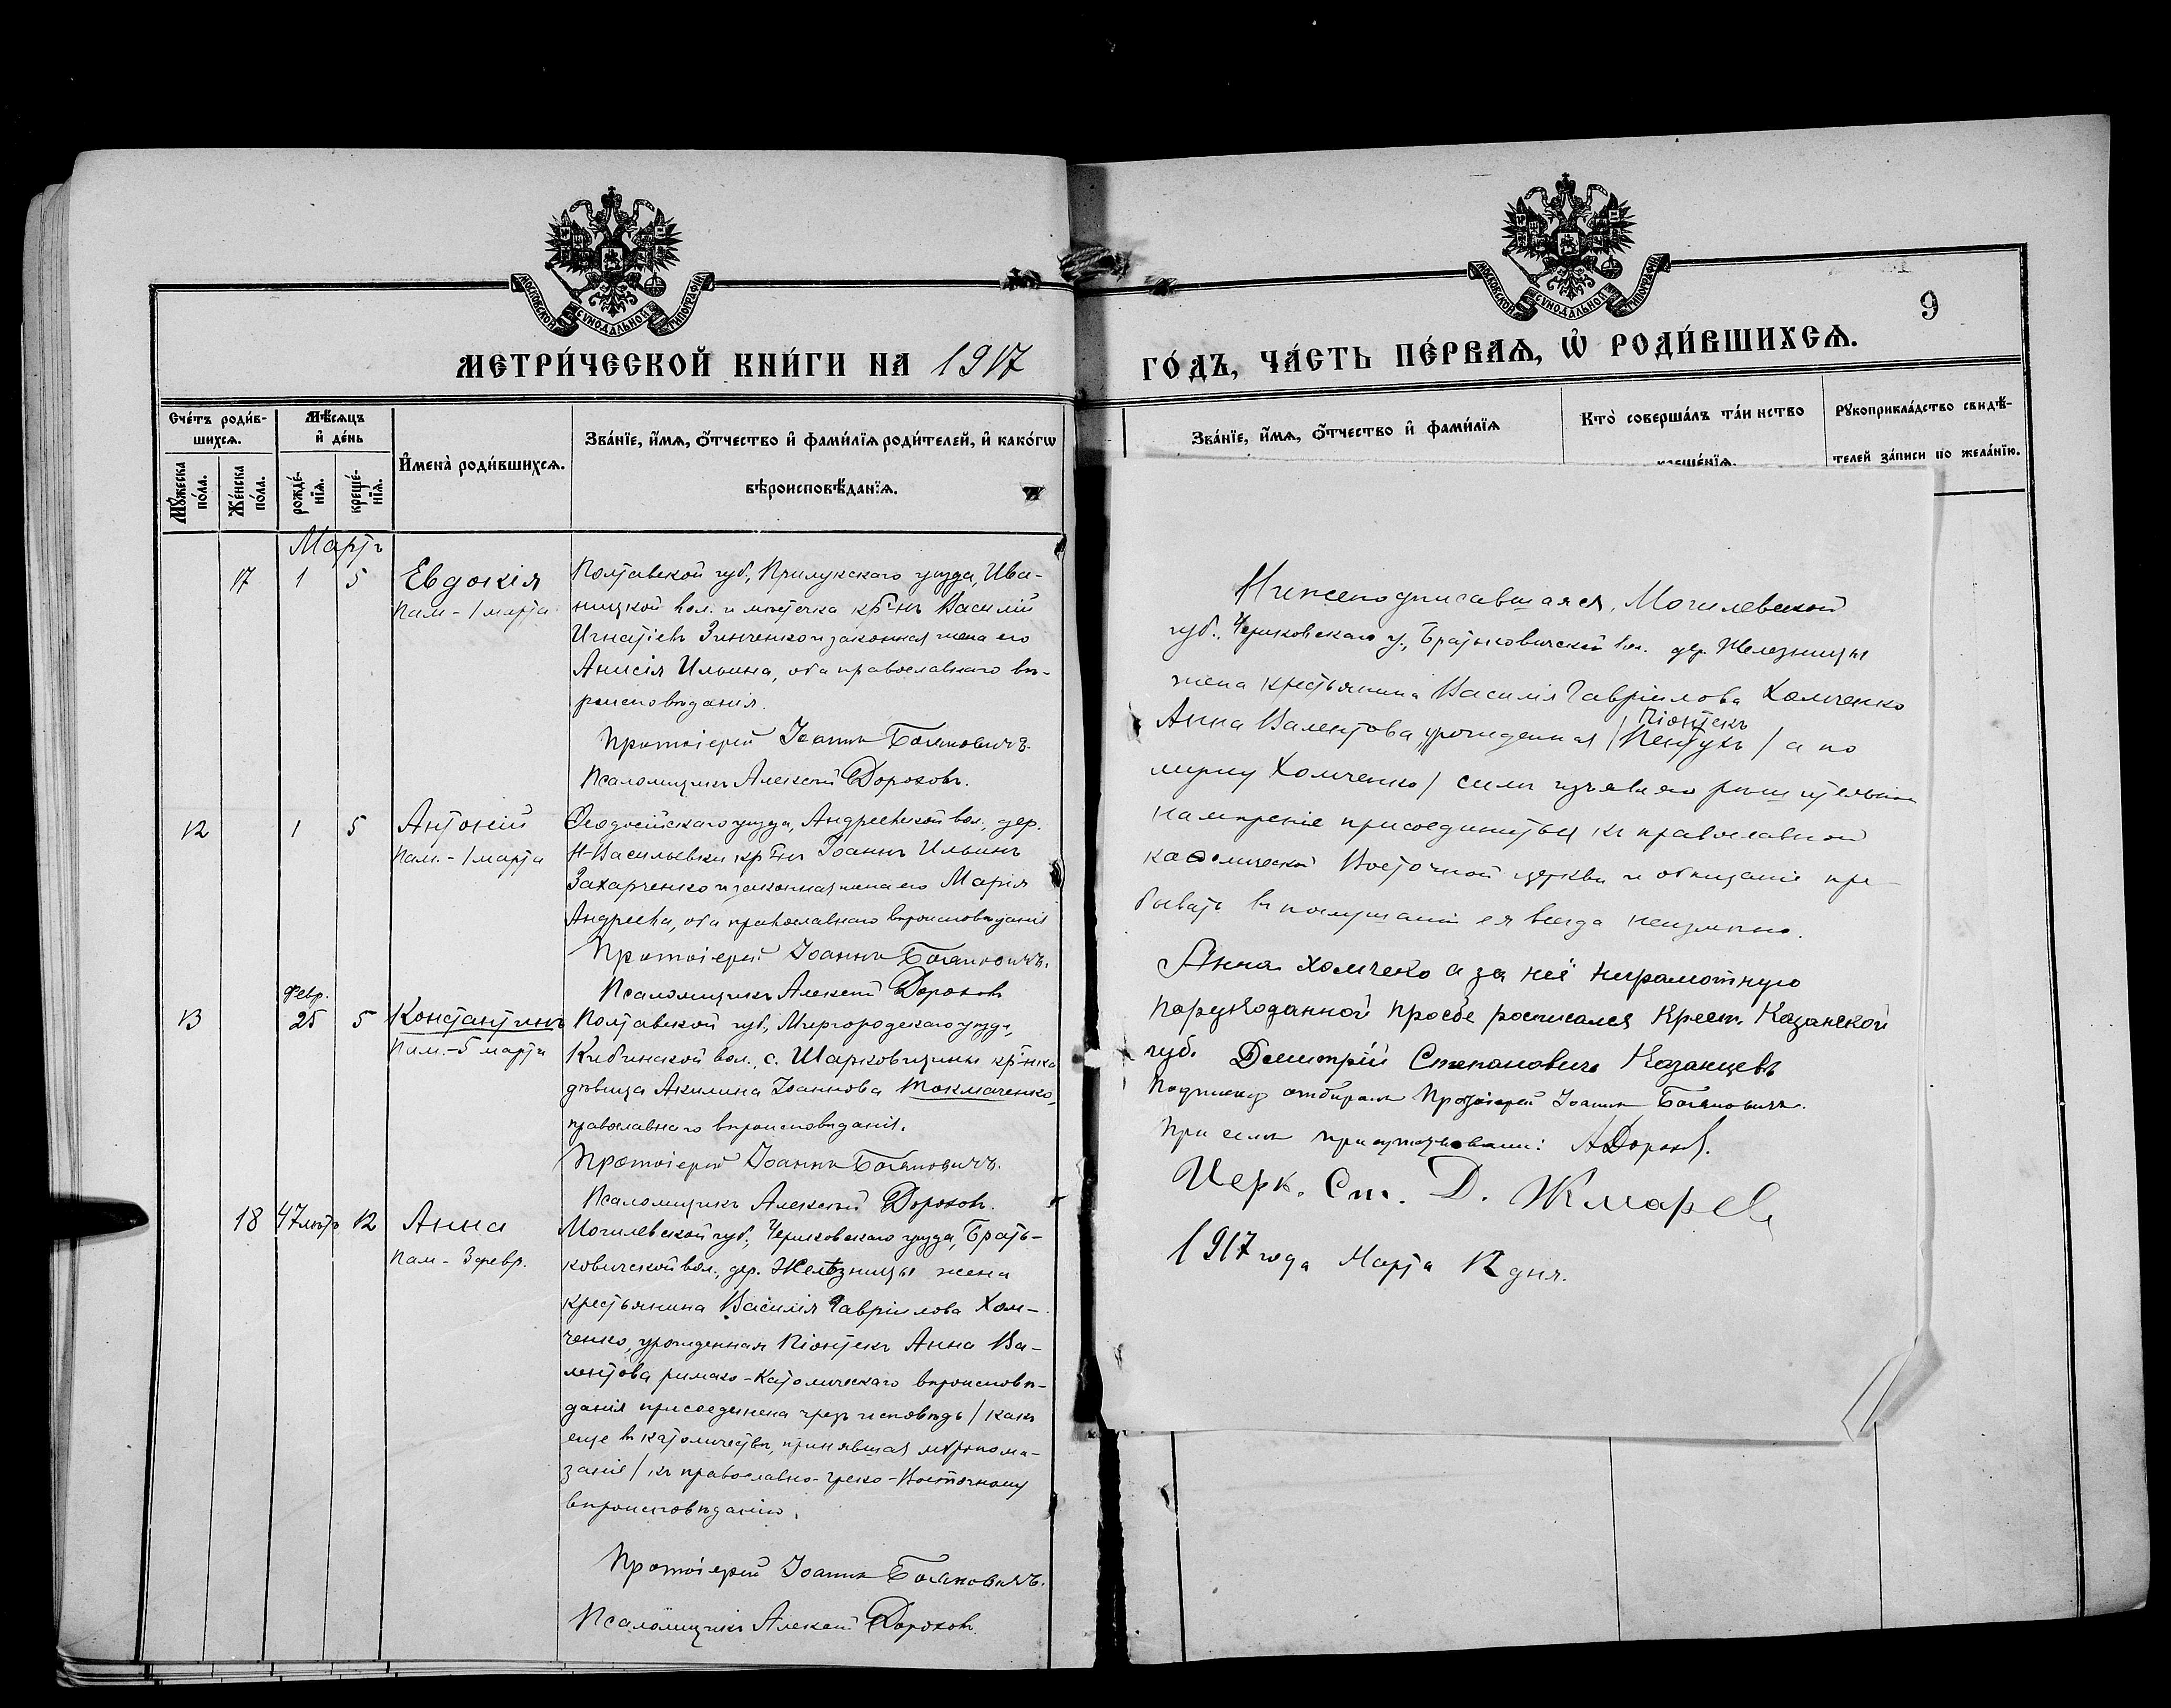 МОСКОВСКОЙ СѴНОДАЛЬНОЙ ТИПОГРАФІИ
МЕТРИ́ЧЕСКОЙ КНИ́ГИ НА 1917
Сче́тъ роди́в-
шихсѧ.
Мѣ́сѧцъ
и҆ де́нь
Мꙋ́жеска по́ла.
Же́нска по́ла.
рожде́-
нїѧ.
креще́-
нїѧ.
И҆мена̀ роди́вшихсѧ.
Зва́нїе, и҆́мѧ, ѻ҆́тчество и҆ фами́лїѧ роди́телей, и҆ како́гѡ
вѣроисповѣ́данїѧ.
Мартъ
17 1 5 Евдокія
Пам. - 1 марта
Полтавской губ., Прилукскаго уѣзда, Ива-
ницкой вол. и мѣстечка кр-нъ Василій
Игнатіевъ Зинченко и законная жена его
Анисія Ильина, оба православнаго вѣ-
роисповѣданія.
Протоіерей Іоаннъ Богяновичъ.
Псаломщикъ Алексій Дороховъ.
12 1 5 Антоній
Пам. - 1 марта
Ѳеодосійскаго уѣзда, Андреевской вол., дер.
Н-Васильевки кр-нъ Іоаннъ Ильинъ
Захарченко и законная жена его Марія
Андреева, оба православнаго вѣроисповѣданія
Протоіерей Іоаннъ Богяновичъ.
Псаломщикъ Алексій Дороховъ
Февр.
13 25 5 Константинъ
Пам. - 5 марта
Полтавской губ., Миргородскаго уѣзда,
Кибинской вол., с. Шарковщины кр-нка
дѣвица Акилина Іоаннова Токмаченко,
православнаго вѣроисповѣданія.
Протоіерей Іоаннъ Богяновичъ.
Псаломщикъ Алексій Дороховъ.
18 47 лѣтъ 12 Анна
Пам - 3 февр.
Могилевской губ., Чериковскаго уѣзда, Брать-
ковичской вол., дер. Желѣзницы жена
крестьянина Василія Гавріилова Хом-
ченко, урожденная Піонтекъ Анна Ва-
лентова римско-католическаго вѣроисповѣ-
данія присоединена чрезъ исповѣдь / какъ
еще въ католичествѣ, принявшая мѵропома-
заніе / къ православно-греко-Восточному
вѣроисповѣданію.
Протоіерей Іоаннъ Богяновичъ.
Псаломщикъ Алексій Дороховъ.
МОСКОВСКОЙ СѴНОДАЛЬНОЙ ТИПОГРАФІИ
9
ГО́ДЪ, ЧА́СТЬ ПЕ́РВАѦ, Ѡ҆ РОДИ́ВШИХСѦ.
Зва́нїе, и҆́мѧ, ѻ҆́тчество и҆ фами́лїѧ
Кто̀ соверша́лъ та́инство
креще́нїѧ.
Рꙋкоприкла́дство свидѣ́-
телей за́писи по жела́нїю.
Нижеподписавшаяся, Могилевской
губ., Чериковскаго у., Братьковичской вол. дер. Железницы
жена крестьянина Василія Гавріилова Хомченко
Піонтекъ
Анна Валентова урожденная / Пентухъ / а по
мужу Хомченко / симъ изъявляю рѣшительное
намѣреніе присоединиться къ православной
каѳолической Восточной церкви и обѣщаніе пре-
бывать въ послушаніи ея всегда неизмѣнно.
Анна Хомчеко а за неё неграмотную
поруководанной прозбе росписался Крест. Казанской
губ. Дмитрій Степановичъ Казанцевъ
Подписку отбиралъ Протоіерей Іоаннъ Богяновичъ.
При семъ присутствовали: АДороховъ.
Церк. Ст. Д. Жмарев
1917 года Марта 12 дня.